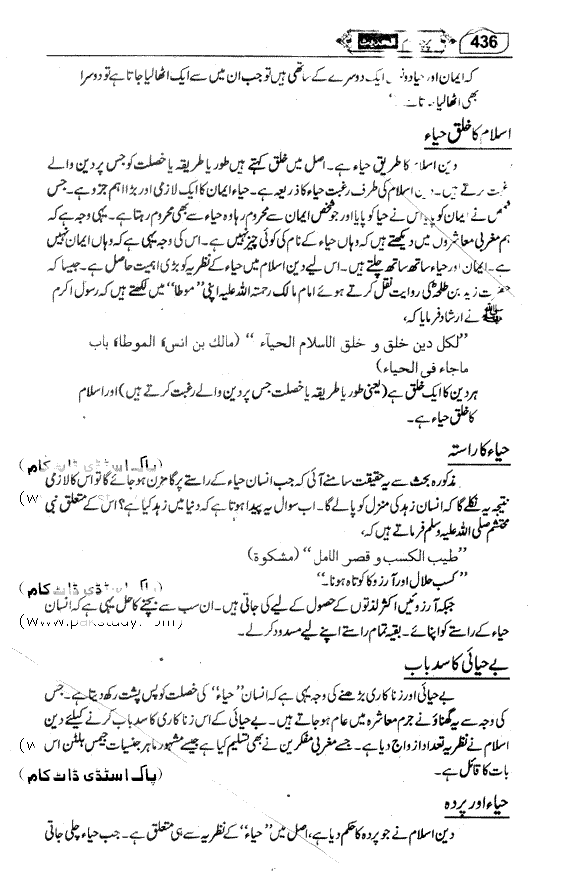 436
کہ ایمان اور حیا دونوں ایک دوسرے کے ساتھی ہیں تو جب ان میں سے ایک اٹھا لیا جاتا ہے تو دوسرا
بھی اٹھا لیا جاتا ہے۔"
اسلام کا خلق حیاء
دین اسلام کا طریق حیاء ہے۔ اصل میں خلق کہتے ہیں طور یا طریقہ یا خصلت کو جس پر دین والے
رغبت کرتے ہیں۔ دین اسلام کی طرف رغبت حیاء کا ذریعہ ہے۔ حیاء ایمان کا ایک لازمی اور بڑا اہم جزو ہے۔ جس
شخص نے ایمان کو پایا اس نے حیا کو پایا اور جو شخص ایمان سے محروم رہا وہ حیاء سے بھی محروم رہتا ہے۔ یہی وجہ ہے کہ
ہم مغربی معاشروں میں دیکھتے ہیں کہ وہاں حیاء کے نام کی کوئی چیز نہیں ہے۔ اس کی وجہ یہی ہے کہ وہاں ایمان نہیں
ہے۔ ایمان اور حیاء ساتھ ساتھ چلتے ہیں۔ اس لیے دین اسلام میں حیاء کے نظریہ کو بڑی اہمیت حاصل ہے۔ جیسا کہ
حضرت زید بن طلحہؓ کی روایت نقل کرتے ہوئے امام مالک رحمتہ اللہ علیہ اپنی "موطا" میں لکھتے ہیں کہ رسول اکرم
ﷺ نے ارشاد فرمایا کہ،
"لکل دین خلق و خلق الاسلام الحیآء" (مالک بن انس، الموطا، باب
ماجاء فی الحیاء)
ہر دین کا ایک خلق ہے (یعنی طور یا طریقہ یا خصلت جس پر دین والے رغبت کرتے ہیں) اور اسلام
کا خلق حیاء ہے۔
حیاء کا راستہ
(پاک اسٹڈی ڈاٹ کام)
مذکورہ بحث سے یہ حقیقت سامنے آئی کہ جب انسان حیاء کے راستے پر گامزن ہو جائے گا تو اس کا لازمی
نتیجہ یہ نکلے گا کہ انسان زہد کی منزل کو پالے گا۔ اب سوال یہ پیدا ہوتا ہے کہ دنیا میں زہد کیا ہے؟ اس کے متعلق نبی (w
محتشم صلی اللہ علیہ وسلم فرماتے ہیں کہ،
"طیب الکسب و قصر الامل" (مشکوۃ)
"کسب حلال اور آرزو کا کوتاہ ہونا۔"
(پاک اسٹڈی ڈاٹ کام)
جبکہ آرزوئیں اکثر لذتوں کے حصول کے لیے کی جاتی ہیں۔ ان سب سے بچنے کا حل یہی ہے کہ انسان
حیاء کے راستے کو اپنائے۔ بقیہ تمام راستے اپنے لیے مسدود کر لے۔ (www.pakstudy.com)
بے حیائی کا سد باب
بے حیائی اور زنا کاری بڑھنے کی وجہ یہی ہے کہ انسان "حیاء" کی خصلت کو پس پشت رکھ دیتا ہے۔ جس
کی وجہ سے یہ گھناؤنے جرم معاشرہ میں عام ہو جاتے ہیں۔ بے حیائی کے اس زنا کاری کا سد باب کرنے کیلئے دین
اسلام نے نظریہ تعداد ازواج دیا ہے۔ جسے مغربی مفکرین نے بھی تسلیم کیا ہے جیسے مشہور ماہر جنسیات جیمس ہلٹن اس (w
بات کا قائل ہے۔ (پاک اسٹڈی ڈاٹ کام)
حیاء اور پردہ
دین اسلام نے جو پردہ کا حکم دیا ہے، اصل میں "حیاء" کے نظریہ سے ہی متعلق ہے۔ جب حیاء چلی جاتی